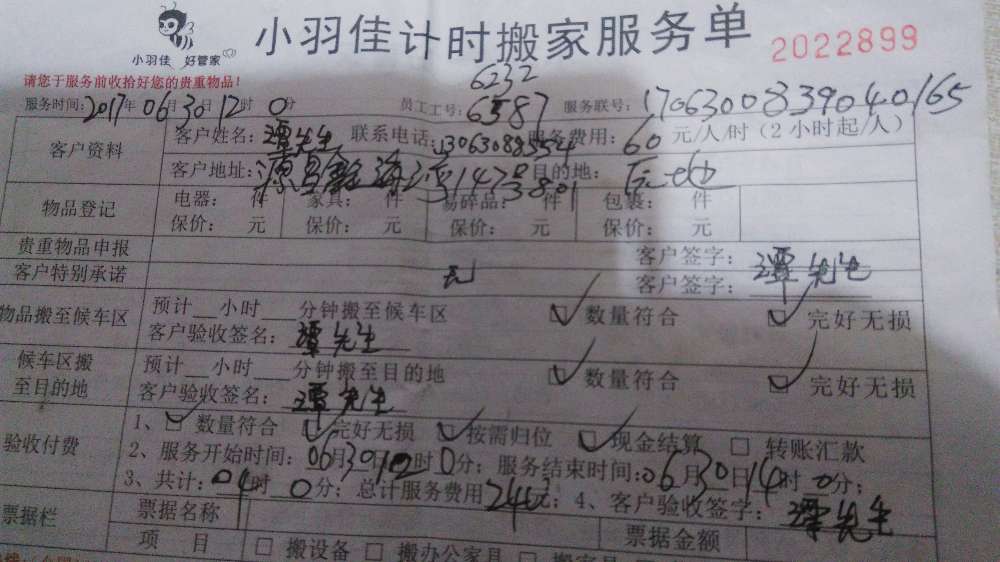 小羽佳计时搬家服务单
小羽佳 好管家
2022899
请您于服务前收拾好您的贵重物品！
6232
服务时间：2017年06月30日12时0分 员工工号：6587 服务联号：170630083904 0165
客户资料
客户姓名：谭先生 联系电话：13063088554 服务费用：60元/人/时（2小时起/人）
客户地址：源昌鑫海湾147号801 目的地：后地
物品登记
电器： 件 家具： 件 易碎品： 件 包装： 件
保价： 元 保价： 元 保价： 元 保价： 元
贵重物品申报 客户签字：谭先生
客户特别承诺 无 客户签字：
物品搬至候车区
预计__小时__分钟搬至候车区 ☑数量符合 ☑完好无损
客户验收签名：谭先生
候车区搬至目的地
预计__小时__分钟搬至目的地 ☑数量符合 ☑完好无损
客户验收签名：谭先生
验收付费
1、☑数量符合 ☑完好无损 ☑按需归位 ☑现金结算 □转账汇款
2、服务开始时间：06月30日12时0分；服务结束时间：06月30日14时0分；
3、共计：04时0分；总计服务费用240元；4、客户验收签字：谭先生
票据栏
票据名称 票据金额
项 目 □搬设备 □搬办公家具 □搬家具